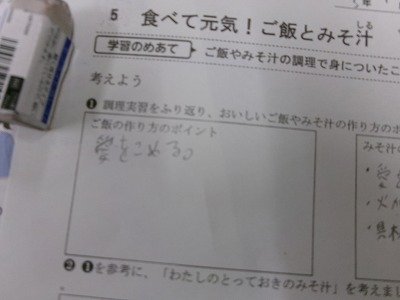 5 食べて元気！ご飯とみそ汁
しる
学習のめあて
ご飯やみそ汁の調理で身についたこ
考えよう
❶ 調理実習をふり返り、おいしいご飯やみそ汁の作り方のポ
ご飯の作り方のポイント
愛をこめる。
みそ汁
・愛
❷ ❶を参考に、「わたしのとっておきのみそ汁」を考えまし